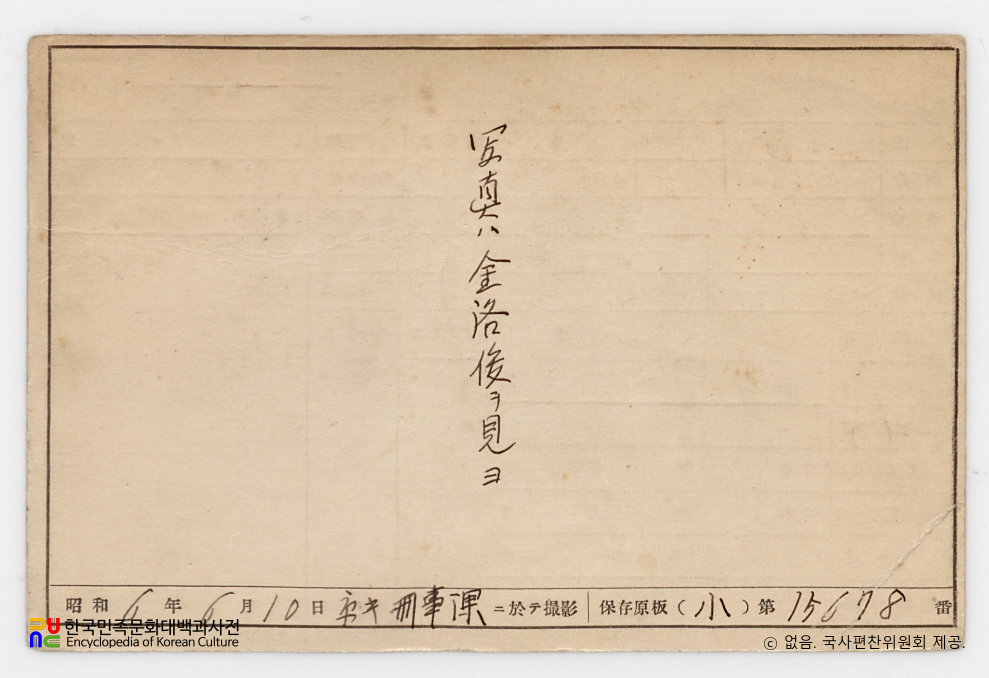 写真ハ金洛俊ヲ見ヨ
昭和6年6月10日 京キ刑事課ニ於テ撮影 保存原板(小)第15678番
한국민족문화대백과사전
Encyclopedia of Korean Culture
ⓒ 없음. 국사편찬위원회 제공.